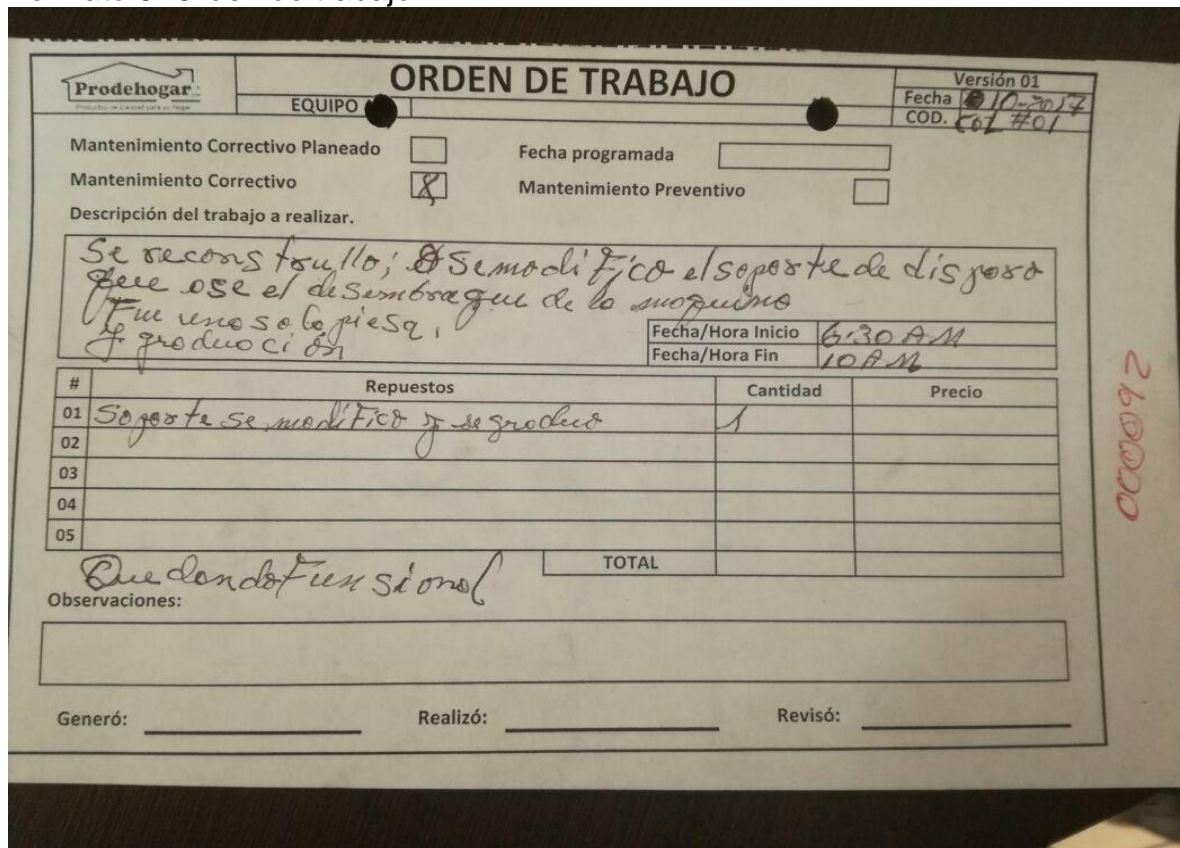 Prodehogar
ORDEN DE TRABAJO
EQUIPO
Versión 01
Fecha 10-2017
COD. COL #01
Mantenimiento Correctivo Planeado
Fecha programada
Mantenimiento Correctivo X
Mantenimiento Preventivo
Descripción del trabajo a realizar.
Se reconstrullo; Se modifico el soporte de disparo
que ose el desembrague de la maquina
En una sola piesa,
y graduación
Fecha/Hora Inicio 6:30 AM
Fecha/Hora Fin 10 AM
# Repuestos Cantidad Precio
01 Soporte se modifico y se graduo 1
02
03
04
05
TOTAL
Quedando Funsional
Observaciones:
Generó: Realizó: Revisó: